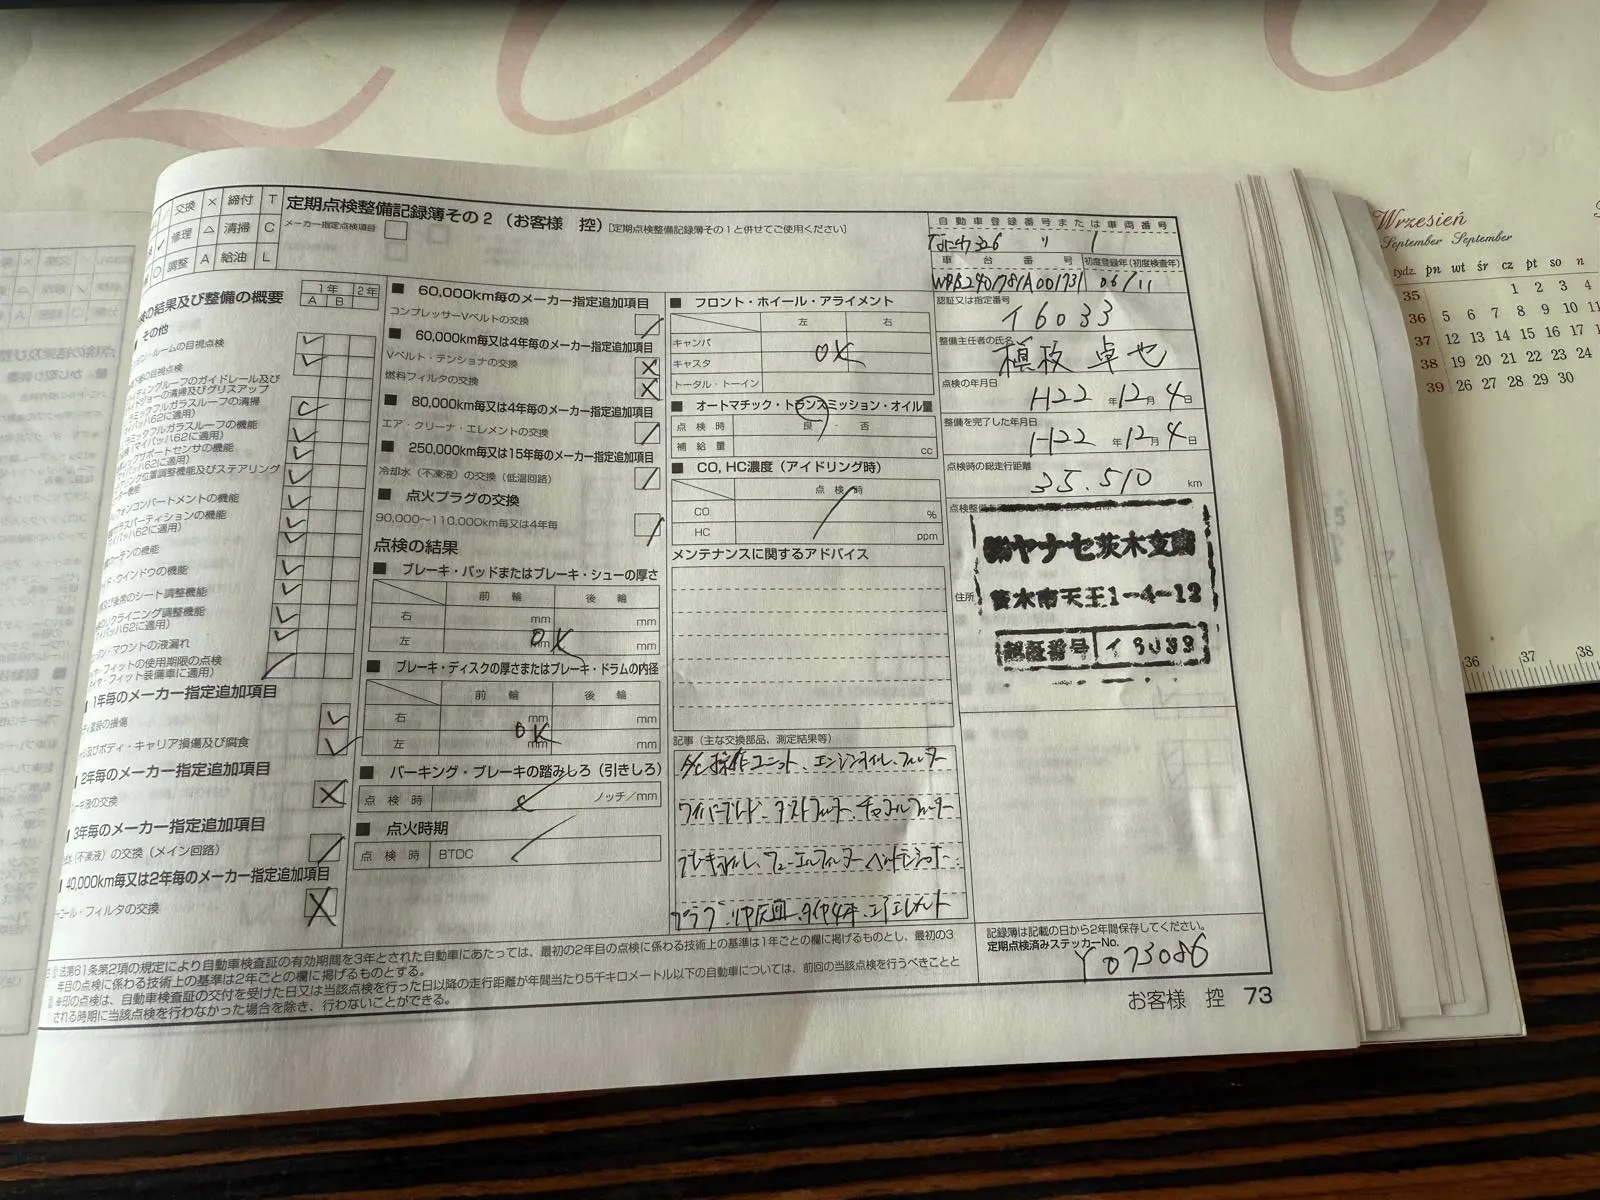 2016
交換 × 締付 T
修理 △ 清掃 C
調整 A 給油 L
定期点検整備記録簿その2（お客様 控）[定期点検整備記録簿その1と併せてご使用ください]
メーカー指定点検項目
の結果及び整備の概要
1年 2年
A B
その他
ルームの目視点検
の目視点検
ルーフのガイドレール及び
の清掃及びグリスアップ
ミックフルガラスルーフの清掃
イバッハ62に適用）
ミックフルガラスルーフの機能
（マイバッハ62に適用）
サポートセンサの機能
バッハ62に適用）
位置調整機能及びステアリング
機能
フォンコンパートメントの機能
パーティションの機能
イバッハ62に適用）
テンの機能
ド・ウインドウの機能
のシート調整機能
リクライニング調整機能
イバッハ62に適用）
マウントの液漏れ
フィットの使用期限の点検
フィット装備車に適用）
1年毎のメーカー指定追加項目
塗装の損傷
及びボディ・キャリア損傷及び腐食
2年毎のメーカー指定追加項目
キ液の交換
3年毎のメーカー指定追加項目
（不凍液）の交換（メイン回路）
40,000km毎又は2年毎のメーカー指定追加項目
コール・フィルタの交換
■ 60,000km毎のメーカー指定追加項目
コンプレッサーVベルトの交換
■ 60,000km毎又は4年毎のメーカー指定追加項目
Vベルト・テンショナの交換
燃料フィルタの交換
■ 80,000km毎又は4年毎のメーカー指定追加項目
エア・クリーナ・エレメントの交換
■ 250,000km毎又は15年毎のメーカー指定追加項目
冷却水（不凍液）の交換（低温回路）
■ 点火プラグの交換
90,000〜110,000km毎又は4年毎
点検の結果
■ ブレーキ・パッドまたはブレーキ・シューの厚さ
前輪 後輪
右 mm mm
左 mm OK mm
■ ブレーキ・ディスクの厚さまたはブレーキ・ドラムの内径
前輪 後輪
右 mm mm
左 mm OK mm
■ パーキング・ブレーキの踏みしろ（引きしろ）
点検時 ノッチ/mm
■ 点火時期
点検時 BTDC
■ フロント・ホイール・アライメント
左 右
キャンバ
キャスタ OK
トータル・トーイン
■ オートマチック・トランスミッション・オイル量
点検時 良・否
補給量 cc
■ CO, HC濃度（アイドリング時）
点検時
CO %
HC ppm
メンテナンスに関するアドバイス
記事（主な交換部品、測定結果等）
A/C操作ユニット、エンジンオイル、フィルター
ワイパーブレード、ダストフィルター、チャコールフィルター
ブレーキオイル、フューエルフィルター
プラグ
自動車登録番号または車両番号
車台番号 初度登録年（初度検査年）
06/11
認証又は指定番号
イ6033
整備主任者の氏名
卓也
点検の年月日
H22年12月4日
整備を完了した年月日
H22年12月4日
点検時の総走行距離
35.510 km
㈱ヤナセ茨木支店
住所 茨木市天王1-4-13
認証番号 イ6033
記録簿は記載の日から2年間保存してください。
定期点検済みステッカーNo.
Y073086
法第61条第2項の規定により自動車検査証の有効期間を3年とされた自動車にあたっては、最初の2年目の点検に係わる技術上の基準は1年ごとの欄に掲げるものとし、最初の3
年目の点検に係わる技術上の基準は2年ごとの欄に掲げるものとする。
※印の点検は、自動車検査証の交付を受けた日又は当該点検を行った日以降の走行距離が年間当たり5千キロメートル以下の自動車については、前回の当該点検を行うべきことと
される時期に当該点検を行わなかった場合を除き、行わないことができる。
お客様 控 73
Wrzesień
September September
tydz. pn wt śr cz pt so n
35 1 2 3 4
36 5 6 7 8 9 10
37 12 13 14 15 16 17
38 19 20 21 22 23 24
39 26 27 28 29 30
36 37 38